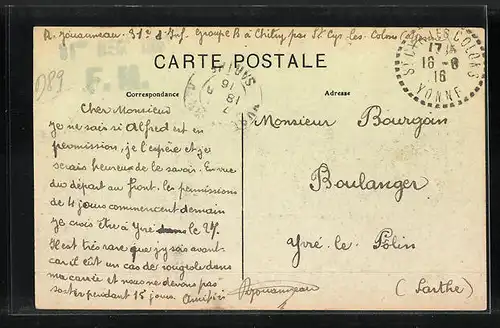 R. Jouanneau. 31e d'Inf. Groupe B à Chitry par St Cyr les Colons (Yonne)
F. M.
D89
CARTE POSTALE
Correspondance
Adresse
ST CYR-LES-COLONS
17
16-8
16
YONNE
SARTHE
18
16
Cher Monsieur
Je ne sais si Alfred est en
permission, je l'espère et je
serais heureux de le savoir. En vue
du départ au front, les permissions
de 4 jours commencent demain
Je crois être à Yvré le 27.
Il est très rare que j'y sais avant
car il eût un cas de rougeole dans
ma carrée et nous ne devons pas
sortir pendant 15 jours. Amitiés
RJouanneau
Monsieur Bourgoin
Boulanger
Yvré-le-Pôlin
(Sarthe)